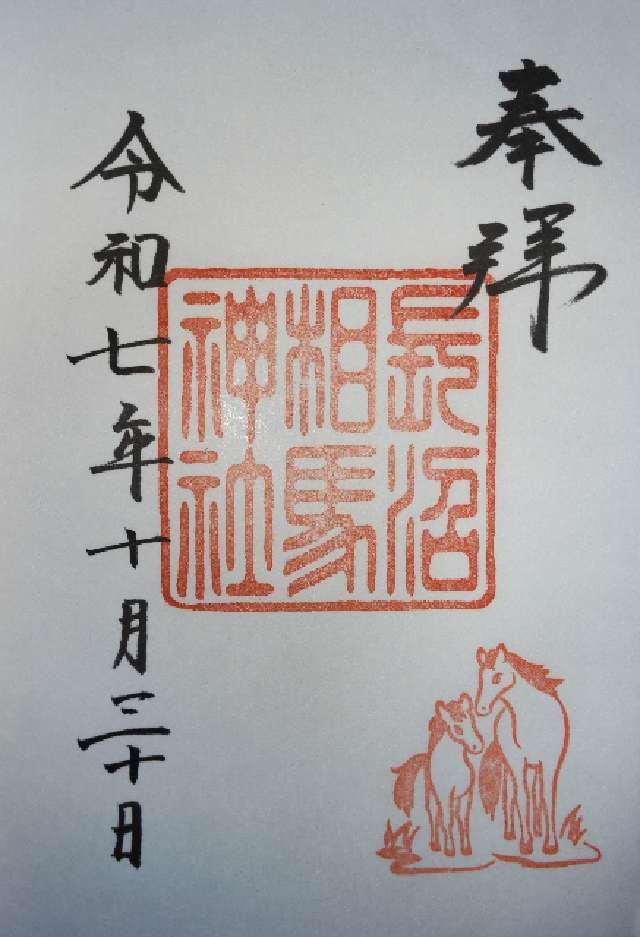 奉拝
長沼
相馬
神社
令和七年十月三十日